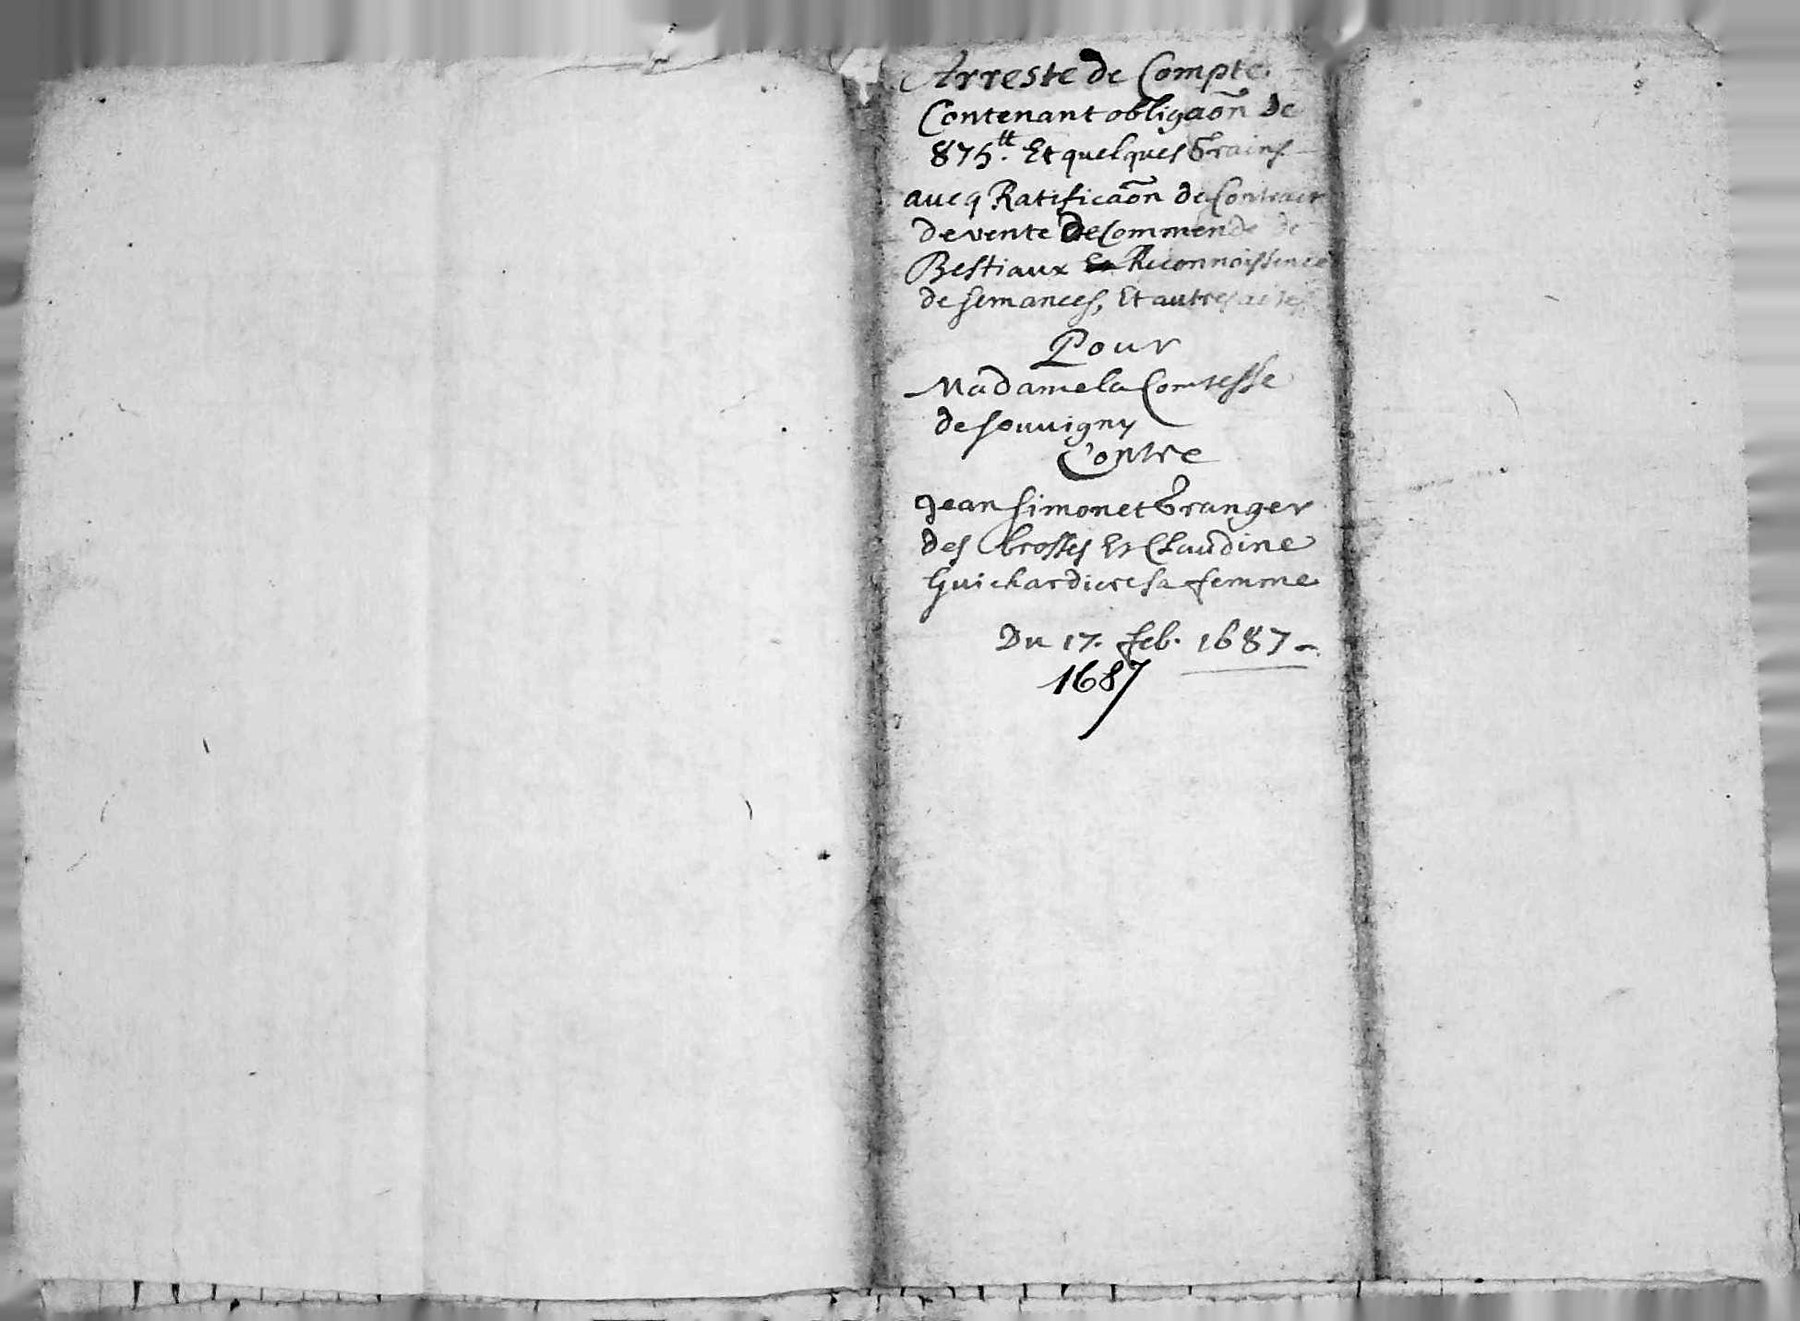 Arreste de Compte
Contenant obligaõn de
875.tt Et quelques Grains
avecq Ratificaõn de Contract
de vente de Commende de
Bestiaux Et Reconnoissence
de semances, Et autres actes
Pour
Madame la Comtesse
de souvigny
Contre
Jean simonet Granger
des brosses Et Claudine
Guichardiere sa femme
Du 17. feb. 1687
1687